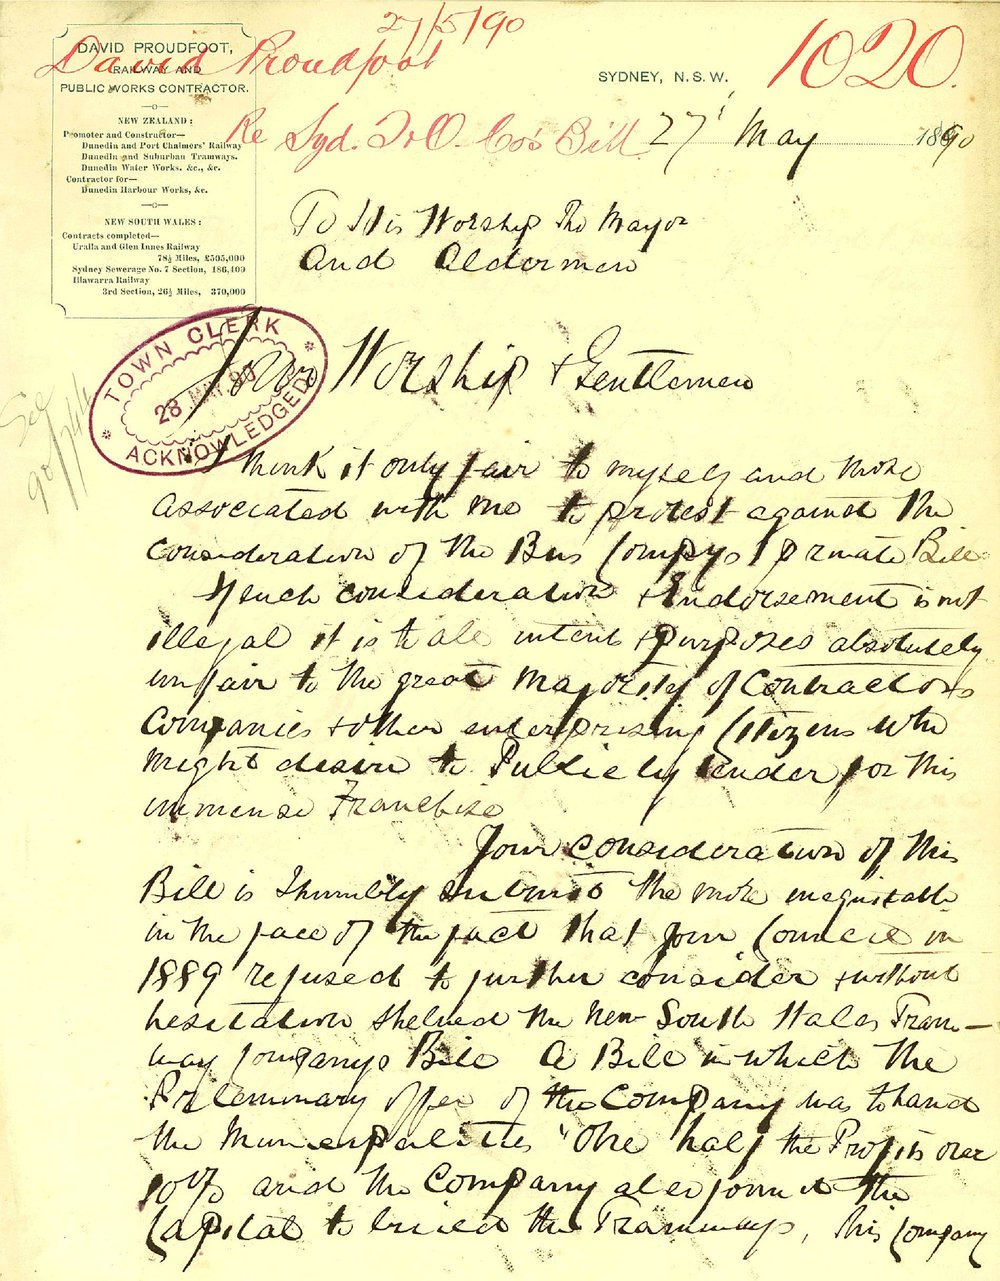 27/5/90
David Proudfoot
1020.
Re Syd. T & O. Co's Bill.
DAVID PROUDFOOT,
RAILWAY AND
PUBLIC WORKS CONTRACTOR.
NEW ZEALAND:
Promoter and Constructor—
Dunedin and Port Chalmers' Railway
Dunedin and Suburban Tramways.
Dunedin Water Works. &c., &c.
Contractor for—
Dunedin Harbour Works, &c.
NEW SOUTH WALES:
Contracts completed—
Uralla and Glen Innes Railway
78½ Miles, £505,000
Sydney Sewerage No. 7 Section, 186,400
Illawarra Railway
3rd Section, 26½ Miles, 370,000
SYDNEY, N.S.W.
27 May 1890
To His Worship The Mayor
And Aldermen
TOWN CLERK
28 MAY 90
ACKNOWLEDGED
See
90/744
Your Worship & Gentlemen
I think it only fair to myself and those
associated with me to protest against the
consideration of the Bus Compys private Bill
If such consideration & Endorsement is not
illegal it is to all intents & purposes absolutely
unfair to the great majority of Contractors
Companies & other enterprising Citizens who
might desire to Publicly tender for this
immense Franchise
Your consideration of this
Bill is I humbly submit the more inequitable
in the face of the fact that your Council in
1889 refused to further consider & without
hesitation shelved the New South Wales Tram-
way Companys Bill A Bill in which the
Prleminary offer of the Company was to hand
the Municipalities "One half the Profits over
10% and the Company also found the
Capital to build the Tramways, This Company